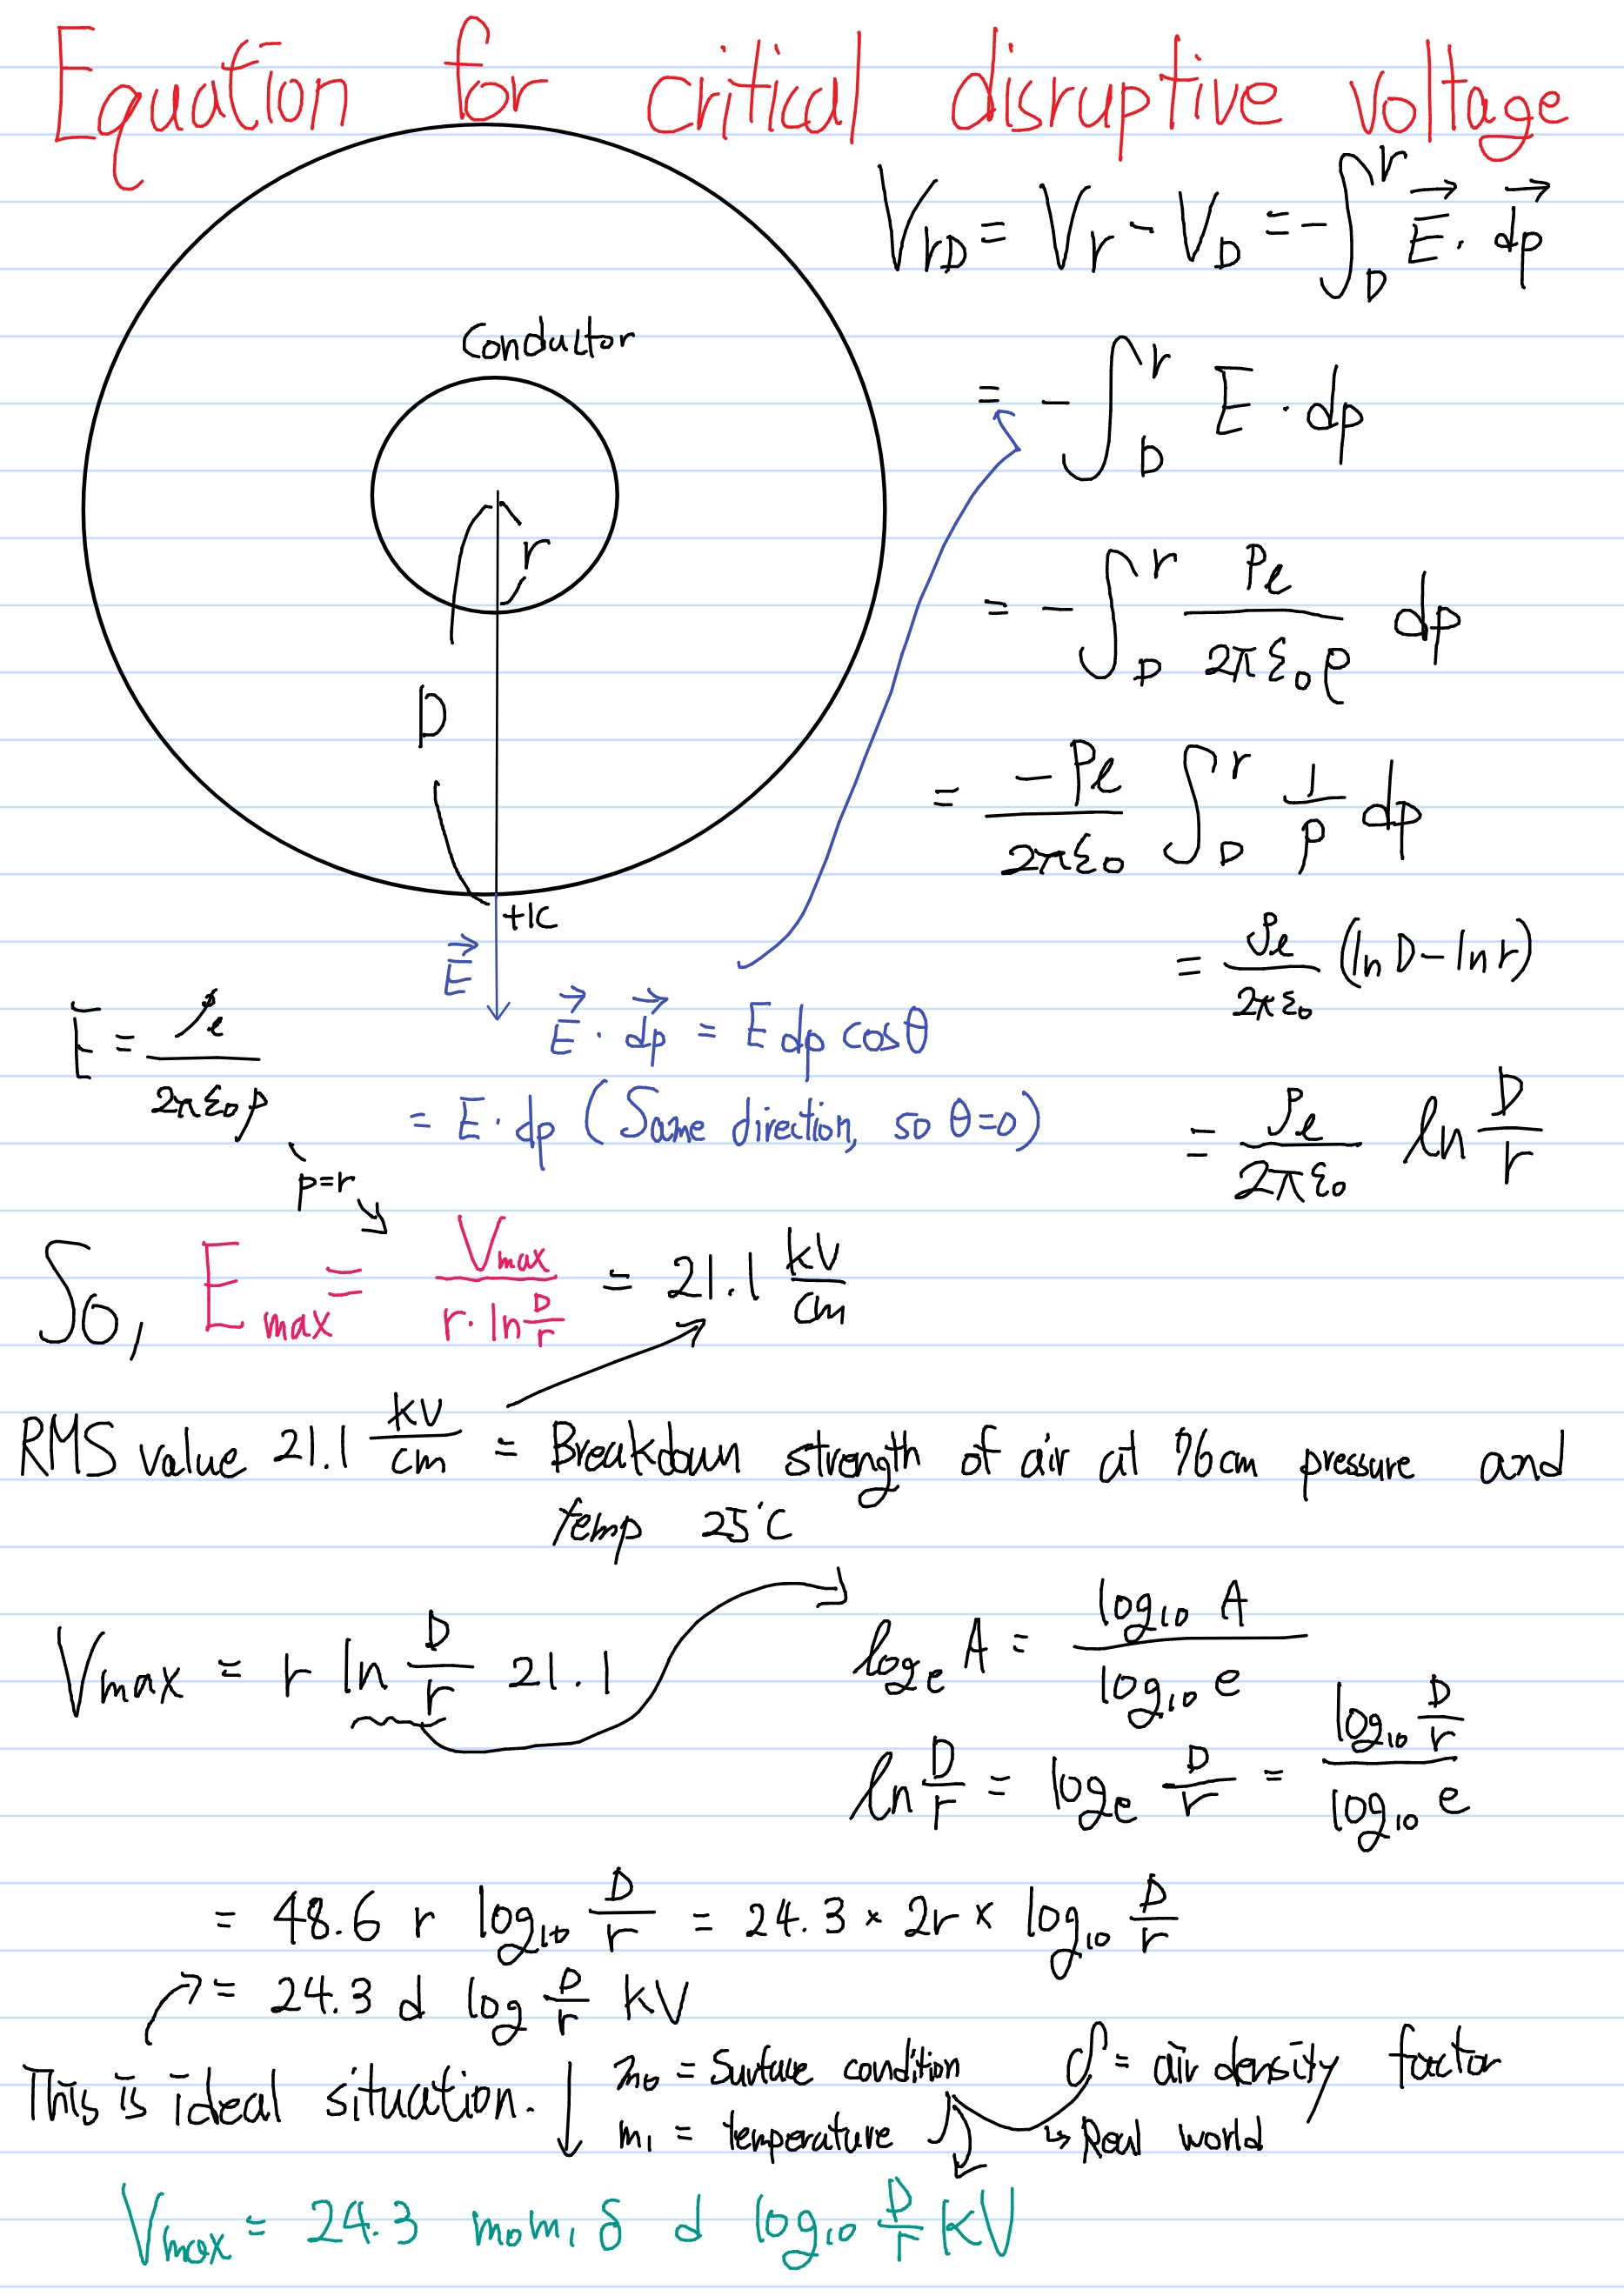 Equation for critical disruptive voltage
V_rD = V_r - V_D = -∫_D^r E⃗ · dp⃗
Conductor
= -∫_D^r E · dp
r
= -∫_D^r Pℓ/(2πε₀ρ) dp
D
= -Pℓ/(2πε₀) ∫_D^r 1/p dp
+1C
E⃗
= ρℓ/(2πε₀) (ln D - ln r)
E = ρℓ/(2πε₀p)
E⃗ · dp⃗ = E dp cosθ
= E · dp (Same direction, so θ=0)
= ρℓ/(2πε₀) ln D/r
p=r
So, E_max = V_max/(r · ln D/r) = 21.1 kV/cm
RMS value 21.1 kV/cm = Breakdown strength of air at 76cm pressure and
temp 25°C
V_max = r ln D/r 21.1
log_e A = log₁₀ A / log₁₀ e
ln D/r = log_e D/r = log₁₀ D/r / log₁₀ e
= 48.6 r log₁₀ D/r = 24.3 × 2r × log₁₀ D/r
= 24.3 d log D/r kV
This is ideal situation.
m₀ = Surface condition
m₁ = temperature
δ = air density factor
Real world
V_max = 24.3 m₀m₁ δ d log₁₀ D/r KV